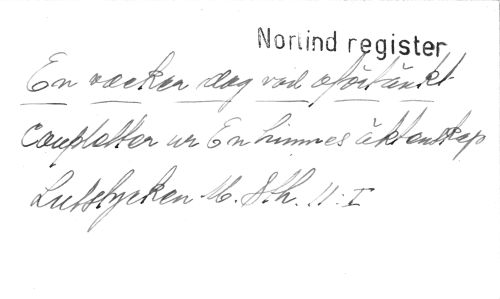 Norlind register
En vacker dag vid oförtänkt
Coupletter ur En hinnes äktenskap
Lutstycken M. Sth. 11:I